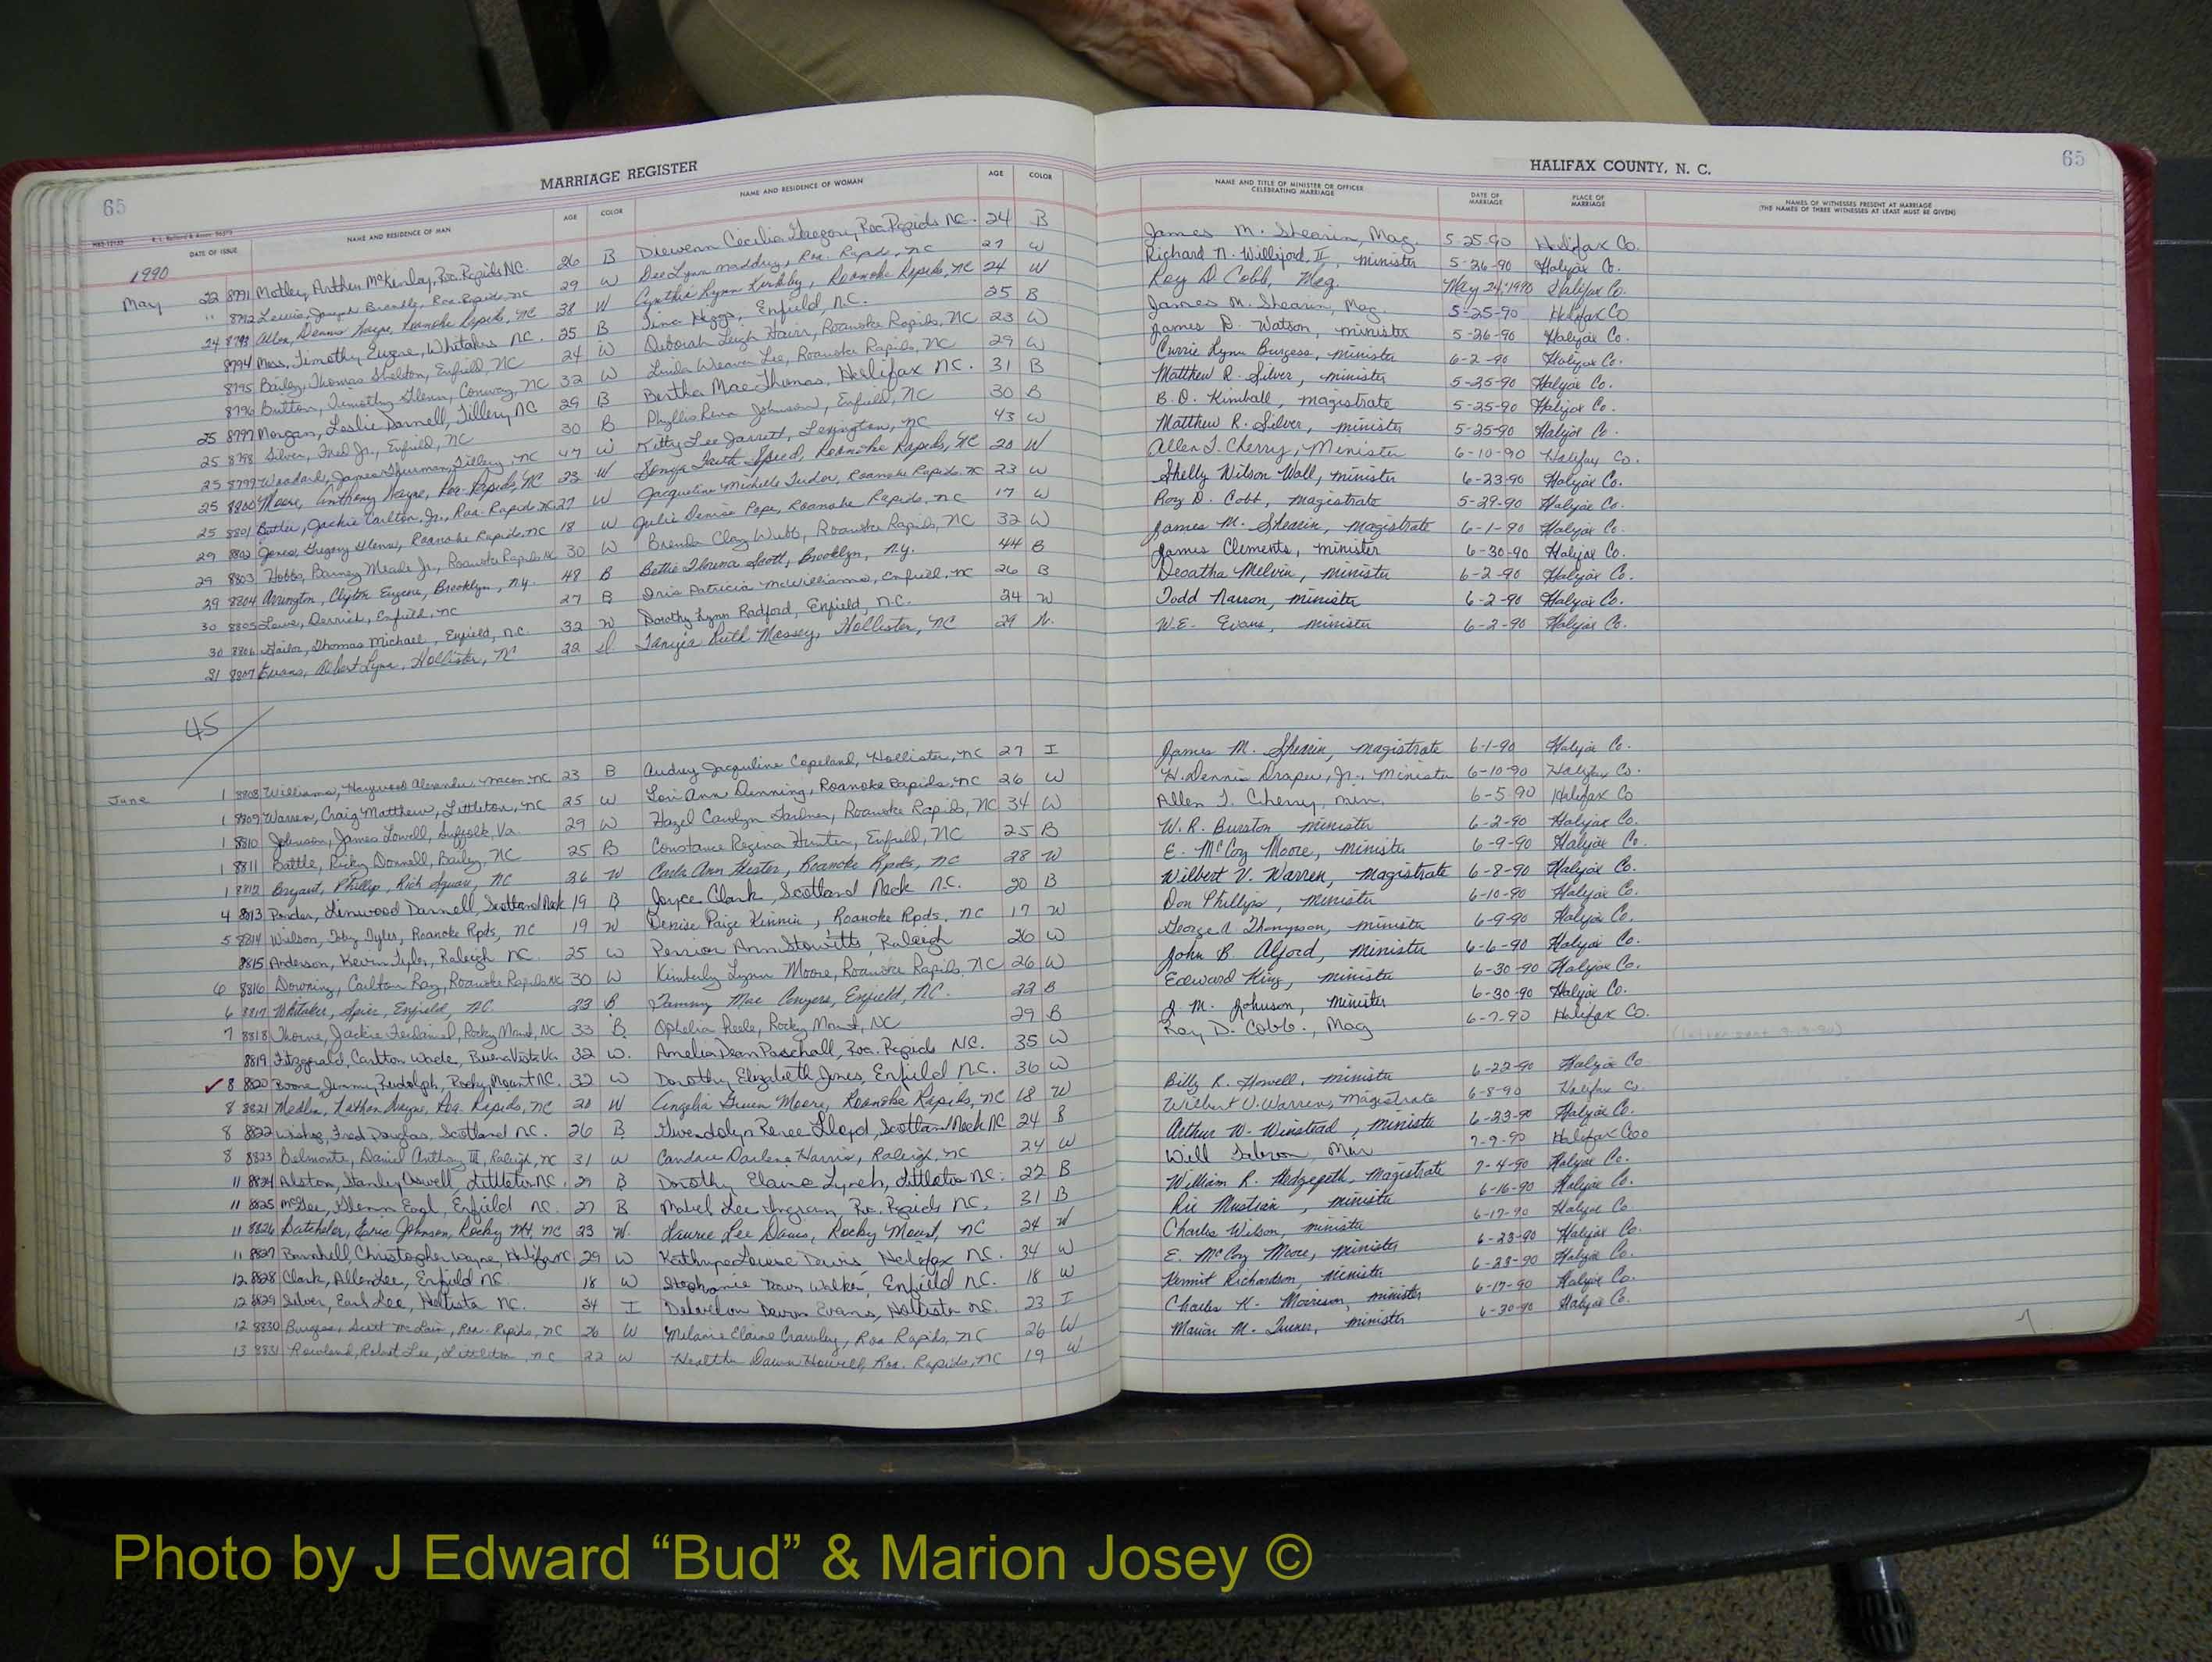 65
MARRIAGE REGISTER
DATE OF ISSUE NAME AND RESIDENCE OF MAN AGE COLOR NAME AND RESIDENCE OF WOMAN AGE COLOR
1990
May 22 8791 Motley, Arthur McKinley, Roa. Rapids NC. 26 B Cecilia Gregory, Roa Rapids NC. 24 B
" 8792 Lewis, Joseph Roa. Rapids, NC 29 W Dee Lynn Maddrey, Roa. Rapids, NC 27 W
24 8793 Allen, Dennis Wayne, Roanoke Rapids, NC 28 W Cynthia Lynn Kirkby, Roanoke Rapids, NC 24 W
8794 Moss, Timothy Eugene, Whitakers NC. 25 B Tina Enfield, N.C. 25 B
8795 Bailey, Thomas Shelton, Enfield, NC 24 W Deborah Leigh Hair, Roanoke Rapids, NC 23 W
8796 Britton, Timothy Glenn, Conway, NC 32 W Linda Weaver Lee, Roanoke Rapids, NC 29 W
25 8797 Morgan, Leslie Darnell, Tillery NC 29 B Bertha Mae Thomas, Halifax NC. 31 B
25 8798 Silver, Fred Jr., Enfield, NC 30 B Phyllis Johnson, Enfield, NC 30 B
25 8799 Woodard, James Thurman, Tillery, NC 47 W Kitty Lee Jarrett, Lexington, NC 43 W
25 8800 Moore, Anthony Wayne, Roa. Rapids, NC 22 W Sonya Faith Speed, Roanoke Rapids, NC 20 W
25 8801 Butler, Jackie Carlton, Jr., Roa. Rapids NC 27 W Jacqueline Michelle Tudor, Roanoke Rapids, NC 23 W
29 8802 Jones, Gregory Glenn, Roanoke Rapids, NC 18 W Julie Denise Pope, Roanoke Rapids, NC 17 W
29 8803 Hobbs, Barney Meade Jr., Roanoke Rapids NC 30 W Brenda Clay Webb, Roanoke Rapids, NC 32 W
29 8804 Arrington, Clifton Eugene, Brooklyn, N.Y. 48 B Bettie Scott, Brooklyn, N.Y. 44 B
30 8805 Derrick, Enfield, NC 27 B Iris Patricia McWilliams, Enfield, NC 26 B
30 8806 Thomas Michael, Enfield, N.C. 32 W Dorothy Lynn Radford, Enfield, N.C. 24 W
31 8807 Evans, Albert Lynn, Hollister, NC 22 Ruth Massey, Hollister, NC 29
45
June 1 8808 Williams, Haywood Alexander, Macon, NC 23 B Audrey Jacquline Copeland, Hollister, NC 27 I
1 8809 Warren, Craig Matthew, Littleton, NC 25 W Lori Ann Dunning, Roanoke Rapids, NC 26 W
1 8810 Johnson, James Lowell, Suffolk, Va. 29 W Hazel Carolyn Roanoke Rapids, NC 34 W
1 8811 Battle, Ricky Donnell, Bailey, NC 25 B Constance Regina Hunter, Enfield, NC 25 B
1 8812 Bryant, Phillip, Rich Square, NC 36 W Carla Ann Hester, Roanoke Rpds, NC 28 W
4 8813 Ponder, Linwood Darnell, Scotland Neck 19 B Joyce Clark, Scotland Neck N.C. 20 B
5 8814 Wilson, Toby Tyler, Roanoke Rpds, NC 19 W Denise Paige Roanoke Rpds, NC 17 W
8815 Anderson, Kevin Tyler, Raleigh NC. 25 W Ann Raleigh 26 W
6 8816 Downing, Carlton Ray, Roanoke Rapids NC 30 W Kimberly Lynn Moore, Roanoke Rapids, NC 26 W
6 8817 Whitaker, Enfield, NC. 23 B Tammy Mae Conyers, Enfield, NC. 22 B
7 8818 Thorne, Jackie Ferdaniel, Rocky Mount, NC 33 B Ophelia Rocky Mount, NC 29 B
8819 Fitzgerald, Carlton Wade, Buena Vista Va 32 W. Amelia Dean Paschall, Roa. Rapids NC. 35 W
✓ 8 8820 Boone, Jimmy Rudolph, Rocky Mount NC. 32 W Dorothy Elizabeth Jones, Enfield N.C. 36 W
8 8821 Medlin, Nathan Wayne, Roa. Rapids, NC 20 W Angelia Moore, Roanoke Rapids, NC 18 W
8 8822 Fred Douglas, Scotland NC. 26 B Gwendolyn Renee Lloyd, Scotland Neck NC 24 B
8 8823 Belmonte, Daniel Anthony III, Raleigh, NC 31 W Candace Darlene Harris, Raleigh, NC 24 W
11 8824 Alston, Stanley Littleton NC. 29 B Dorothy Elaine Lynch, Littleton NC. 22 B
11 8825 McGee, Glenn Earl, Enfield NC. 27 B Mabel Lee Ingram, Roa. Rapids NC. 31 B
11 8826 Batchelor, Eric Johnson, Rocky Mt, NC 23 W. Laurie Lee Davis, Rocky Mount, NC 24 W
11 8827 Barnhill, Christopher Wayne, Halifax NC 29 W Louise Davis Halifax NC. 34 W
12 8828 Clark, Allen Lee, Enfield NC. 18 W Stephanie Dawn Walker, Enfield NC. 18 W
12 8829 Silver, Earl Lee, Hollister NC. 24 I Dawn Evans, Hollister NC. 23 I
12 8830 Burgess, Scott McLain, Roa. Rapids, NC 26 W Melanie Elaine Crawley, Roa Rapids, NC 26 W
13 8831 Rowland, Robert Lee, Littleton, NC 22 W Heather Dawn Howell, Roa. Rapids, NC 19 W
HALIFAX COUNTY, N. C.
65
NAME AND TITLE OF MINISTER OR OFFICER CELEBRATING MARRIAGE DATE OF MARRIAGE PLACE OF MARRIAGE NAMES OF WITNESSES PRESENT AT MARRIAGE (THE NAMES OF THREE WITNESSES AT LEAST MUST BE GIVEN)
James M. Shearin, Mag. 5-25-90 Halifax Co.
Richard N. Williford, II, minister 5-26-90 Halifax Co.
Roy D. Cobb, Mag. May 24, 1990 Halifax Co.
James M. Shearin, Mag. 5-25-90 Halifax Co
James D. Watson, minister 5-26-90 Halifax Co.
Currie Lynn Burgess, minister 6-2-90 Halifax Co.
Matthew R. Silver, minister 5-25-90 Halifax Co.
B. D. Kimball, magistrate 5-25-90 Halifax Co.
Matthew R. Silver, minister 5-25-90 Halifax Co.
Allen T. Cherry, Minister 6-10-90 Halifax Co.
Shelly Wilson Wall, minister 6-23-90 Halifax Co.
Roy D. Cobb, magistrate 5-29-90 Halifax Co.
James M. Shearin, magistrate 6-1-90 Halifax Co.
James Clements, minister 6-30-90 Halifax Co.
Deoatha Melvin, minister 6-2-90 Halifax Co.
Todd Narron, minister 6-2-90 Halifax Co.
W.E. Evans, minister 6-2-90 Halifax Co.
James M. Shearin, magistrate 6-1-90 Halifax Co.
H. Dennis Draper, Jr., Minister 6-10-90 Halifax Co.
Allen T. Cherry, min. 6-5-90 Halifax Co
W. R. Burston, minister 6-2-90 Halifax Co.
E. McCoy Moore, minister 6-9-90 Halifax Co.
Wilbert V. Warren, magistrate 6-8-90 Halifax Co.
Don Phillips, minister 6-10-90 Halifax Co.
George A Thompson, minister 6-9-90 Halifax Co.
John B. Alford, minister 6-6-90 Halifax Co.
Edward King, minister 6-30-90 Halifax Co.
J. M. Johnson, minister 6-30-90 Halifax Co.
Roy D. Cobb., Mag 6-7-90 Halifax Co.
Billy R. Howell, minister 6-22-90 Halifax Co
Wilbert V. Warren, Magistrate 6-8-90 Halifax Co.
Arthur W. Winstead, minister 6-23-90 Halifax Co.
Will Min 7-9-90 Halifax Coo
William R. Hedgepeth, Magistrate 7-4-90 Halifax Co.
Ric Mustian, minister 6-16-90 Halifax Co.
Charles Wilson, minister 6-17-90 Halifax Co
E. McCoy Moore, minister 6-23-90 Halifax Co.
Kermit Richardson, minister 6-23-90 Halifax Co.
Charles K. Morrison, minister 6-17-90 Halifax Co.
Marion M. Turner, minister 6-30-90 Halifax Co.
Photo by J Edward “Bud” & Marion Josey ©